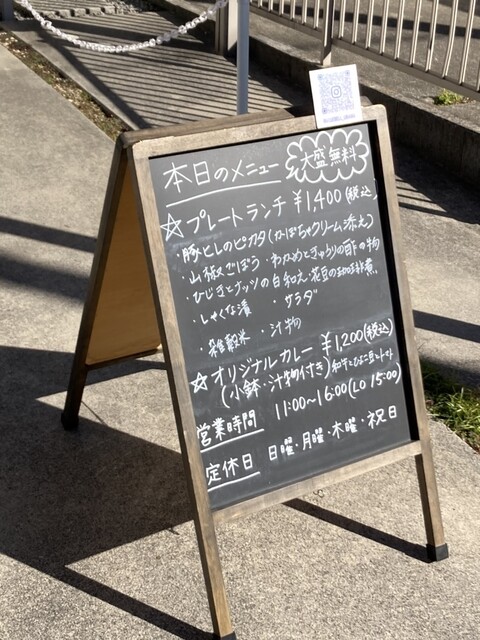 本日のメニュー
大盛無料
☆プレートランチ ¥1,400(税込)
・豚ヒレのピカタ(かぼちゃクリーム添え)
・山椒ごぼう ・わかめときゅうりの酢の物
・ひじきとナッツの白和え・花豆の珈琲煮
・しゃくな漬 ・サラダ
・雑穀米 ・汁物
☆オリジナルカレー ¥1,200(税込)
(小鉢・汁物付き) 和牛とひよこ豆とトマト
営業時間 11:00~16:00(LO 15:00)
定休日 日曜・月曜・木曜・祝日